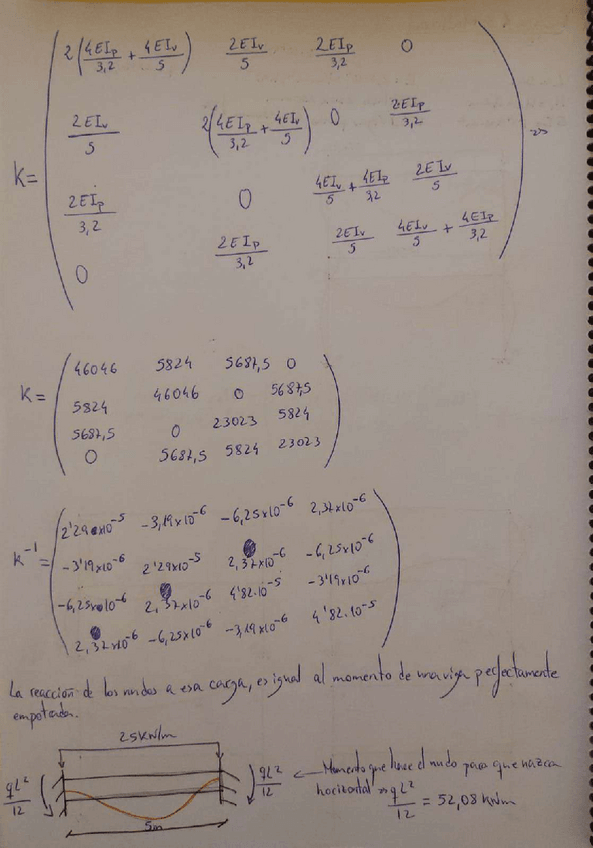 2(4EIp/3,2 + 4EIv/5) 2EIv/5 2EIp/3,2 0
2EIv/5 2(4EIp/3,2 + 4EIv/5) 0 2EIp/3,2
K=
2EIp/3,2 0 4EIv/5 + 4EIp/3,2 2EIv/5
0 2EIp/3,2 2EIv/5 4EIv/5 + 4EIp/3,2
46046 5824 5687,5 0
K= 5824 46046 0 5687,5
5687,5 0 23023 5824
0 5687,5 5824 23023
2'29x10⁻⁵ -3,19x10⁻⁶ -6,25x10⁻⁶ 2,37x10⁻⁶
K⁻¹= -3'19x10⁻⁶ 2'29x10⁻⁵ 2,37x10⁻⁶ -6,25x10⁻⁶
-6,25x10⁻⁶ 2,37x10⁻⁶ 4'82·10⁻⁵ -3'19x10⁻⁶
2,37x10⁻⁶ -6,25x10⁻⁶ -3,19x10⁻⁶ 4'82·10⁻⁵
La reacción de los nudos a esa carga, es igual al momento de una viga perfectamente
empotrada.
25KN/m
qL²/12 qL²/12 ← Momento que hace el nudo para que nazca
horizontal → qL²/12 = 52,08 kNm
5m